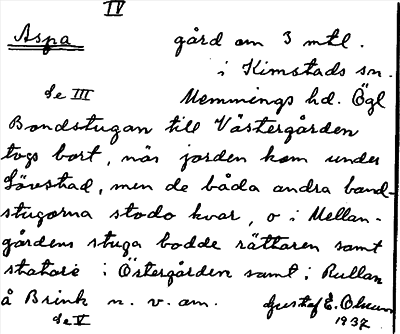 IV
Aspa gård om 3 mtl.
i Kimstads sn.
Se III Memmings hd. Ögl
Bondstugan till Västergården
togs bort, när jorden kom under
Lövstad, men de båda andra bond-
stugorna stodo kvar, o i Mellan-
gårdens stuga bodde rättaren samt
statare i Östergården samt i Rullan
å Brink n. v. am. Gustaf E. Olsson
Se V 1937